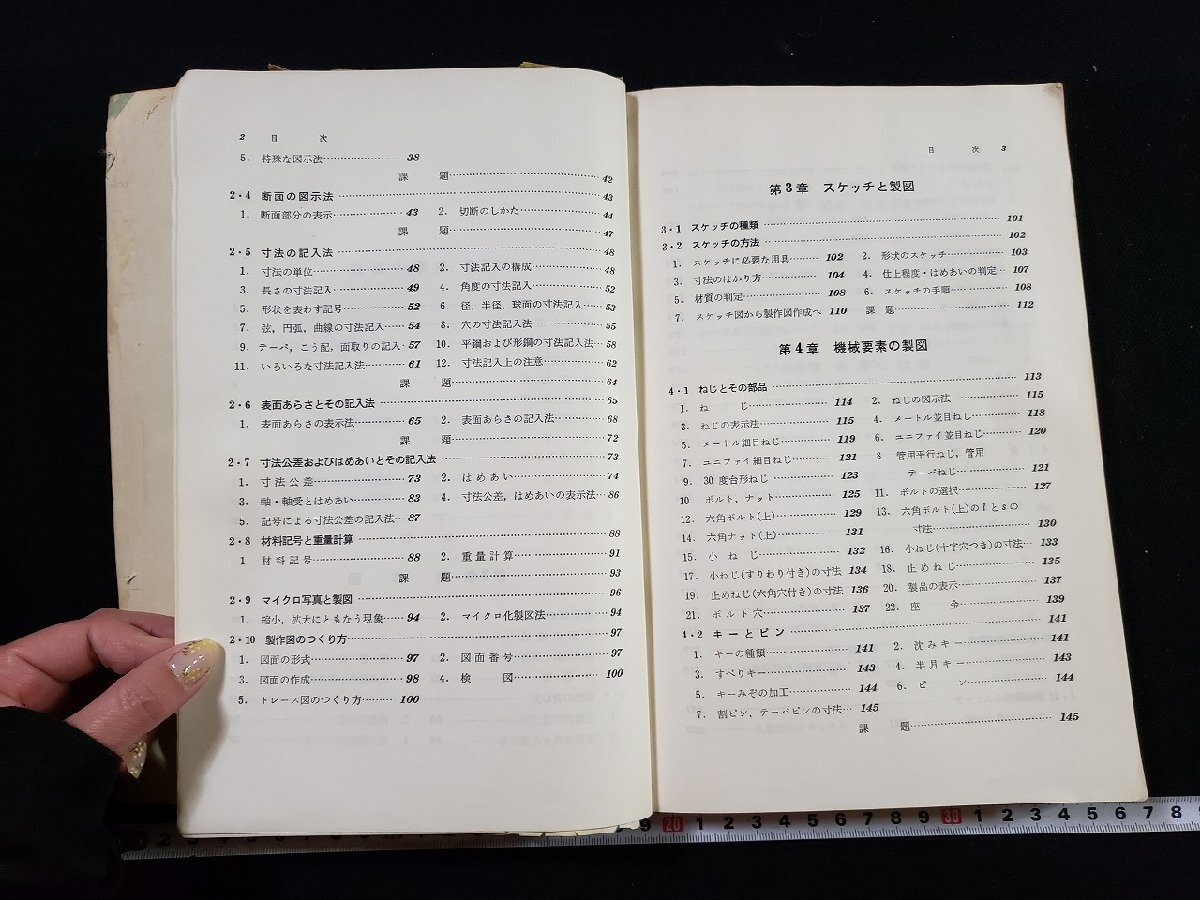 2 目 次
5. 特殊な図示法 38
課 題 42
2・4 断面の図示法 43
1. 断面部分の表示 43 2. 切断のしかた 44
課 題 47
2・5 寸法の記入法 48
1. 寸法の単位 48 2. 寸法記入の構成 48
3. 長さの寸法記入 49 4. 角度の寸法記入 52
5. 形状を表わす記号 52 6. 径, 半径, 球面の寸法記入 53
7. 弦, 円弧, 曲線の寸法記入 54 8. 穴の寸法記入法 55
9. テーパ, こう配, 面取りの記入 57 10. 平鋼および形鋼の寸法記入法 58
11. いろいろな寸法記入法 61 12. 寸法記入上の注意 62
課 題 64
2・6 表面あらさとその記入法 65
1. 表面あらさの表示法 65 2. 表面あらさの記入法 68
課 題 72
2・7 寸法公差およびはめあいとその記入法 73
1. 寸法公差 73 2. はめあい 74
3. 軸・軸受とはめあい 83 4. 寸法公差, はめあいの表示法 86
5. 記号による寸法公差の記入法 87
2・8 材料記号と重量計算 88
1 材料記号 88 2. 重量計算 91
課 題 93
2・9 マイクロ写真と製図 96
1. 縮小, 拡大にともなう現象 94 2. マイクロ化製図法 94
2・10 製作図のつくり方 97
1. 図面の形式 97 2. 図面番号 97
3. 図面の作成 98 4. 検 図 100
5. トレース図のつくり方 100
目 次 3
第3章 スケッチと製図
3・1 スケッチの種類 101
3・2 スケッチの方法 102
1. スケッチに必要な用具 102 2. 形状のスケッチ 103
3. 寸法のはかり方 104 4. 仕上程度・はめあいの判定 107
5. 材質の判定 108 6. スケッチの手順 108
7. スケッチ図から製作図作成へ 110 課 題 112
第4章 機械要素の製図
4・1 ねじとその部品 113
1. ね じ 114 2. ねじの図示法 115
3. ねじの表示法 115 4. メートル並目ねじ 118
5. メートル細目ねじ 119 6. ユニファイ並目ねじ 120
7. ユニファイ細目ねじ 121 8 管用平行ねじ, 管用
テーパねじ 121
9. 30度台形ねじ 123
10. ボルト, ナット 125 11. ボルトの選択 127
12. 六角ボルト(上) 129 13. 六角ボルト(上)のlとsの
寸法 130
14. 六角ナット(上) 131
15. 小ねじ 132 16. 小ねじ(十字穴つき)の寸法 133
17. 小ねじ(すりわり付き)の寸法 134 18. 止めねじ 135
19. 止めねじ(六角穴付き)の寸法 136 20. 製品の表示 137
21. ボルト穴 137 22. 座 金 139
4・2 キーとピン 141
1. キーの種類 141 2. 沈みキー 141
3. すべりキー 143 4. 半月キー 143
5. キーみぞの加工 144 6. ピ ン 144
7. 割ピン, テーパピンの寸法 145
課 題 145
9 20 1 2 3 4 5 6 7 8 9 30 1 2 3 4 5 6 7 8